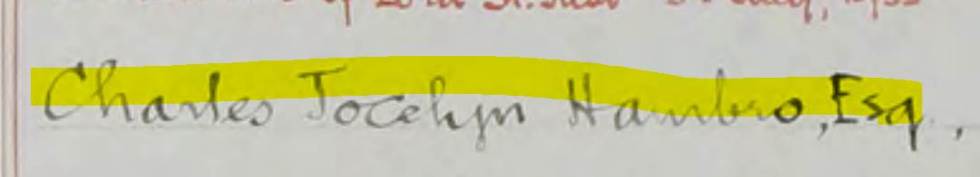 Charles Jocelyn Hambro, Esq.,